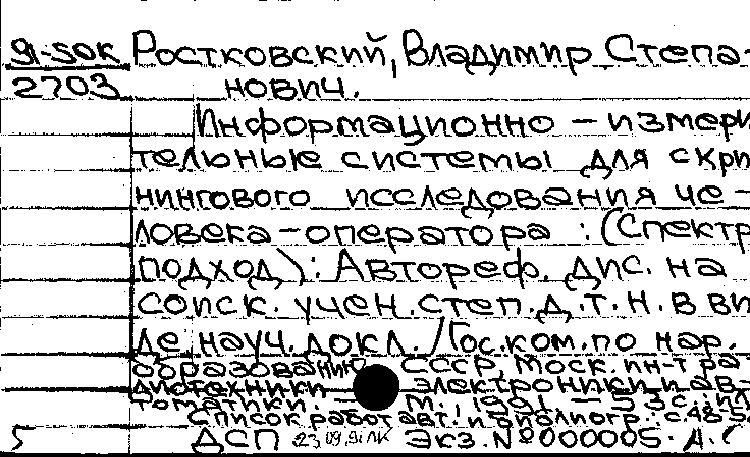 91-5ДК Ростковский, Владимир Степа-
2703 нович.
Информационно – измери
тельные системы для скри
нингового исследования че –
ловека – оператора : (Спектр
подход) : Автореф. дис. на
соиск. учен. степ. д. т. н. в ви
де науч. докл. / Гос. ком. по нар.
образованию СССР, Моск. ин-т ра
диотехники электроники и ав-
томатики. – М., 1991. – 53 с.: ил
Список работ авт. и библиогр.: с. 48-5
5 ДСП 23.09.91 ЛК Экз. № 000005. Д. С